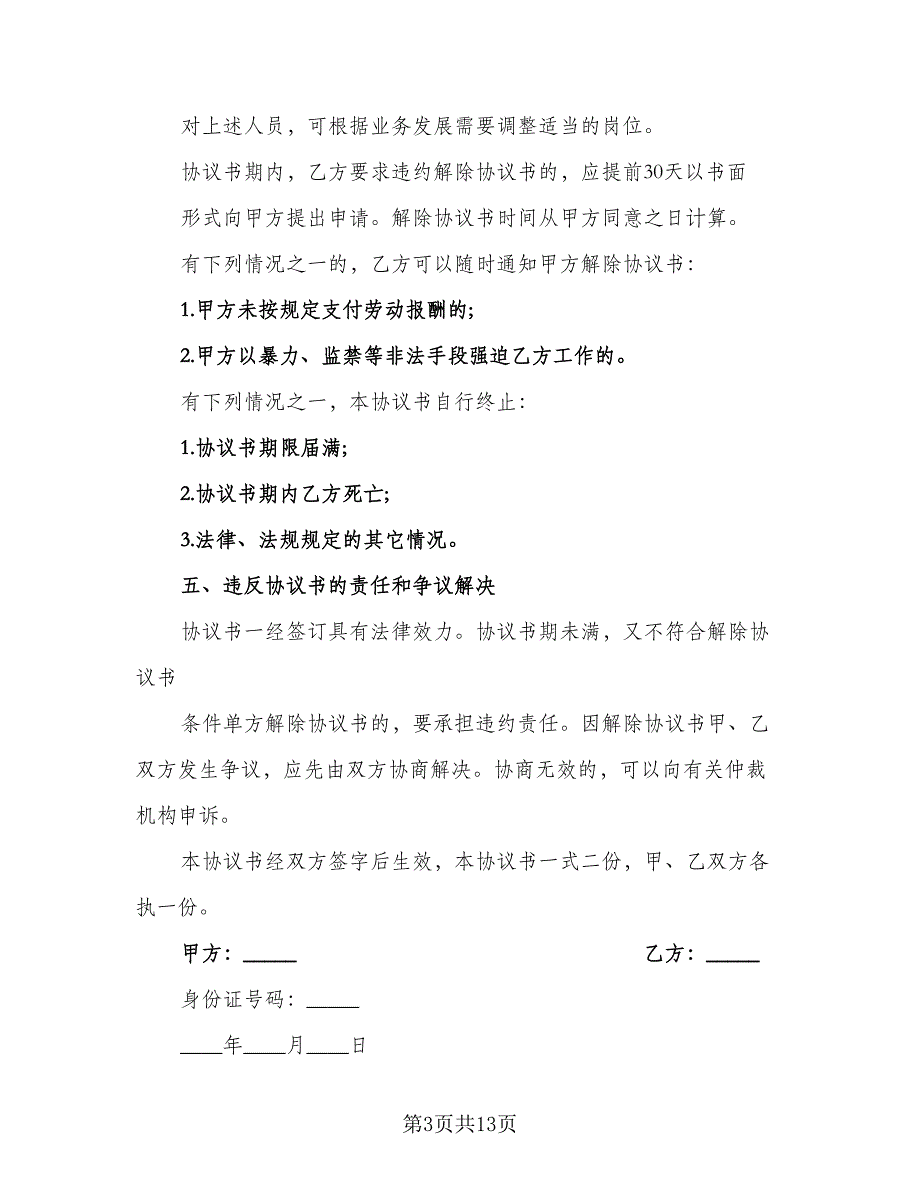 对上述人员，可根据业务发展需要调整适当的岗位。
协议书期内，乙方要求违约解除协议书的，应提前30天以书面
形式向甲方提出申请。解除协议书时间从甲方同意之日计算。
有下列情况之一的，乙方可以随时通知甲方解除协议书：
1.甲方未按规定支付劳动报酬的;
2.甲方以暴力、监禁等非法手段强迫乙方工作的。
有下列情况之一，本协议书自行终止：
1.协议书期限届满;
2.协议书期内乙方死亡;
3.法律、法规规定的其它情况。
五、违反协议书的责任和争议解决
协议书一经签订具有法律效力。协议书期未满，又不符合解除协
议书
条件单方解除协议书的，要承担违约责任。因解除协议书甲、乙
双方发生争议，应先由双方协商解决。协商无效的，可以向有关仲裁
机构申诉。
本协议书经双方签字后生效，本协议书一式二份，甲、乙双方各
执一份。
甲方：_____ 乙方：_____
身份证号码：_____
____年____月____日
第3页共13页